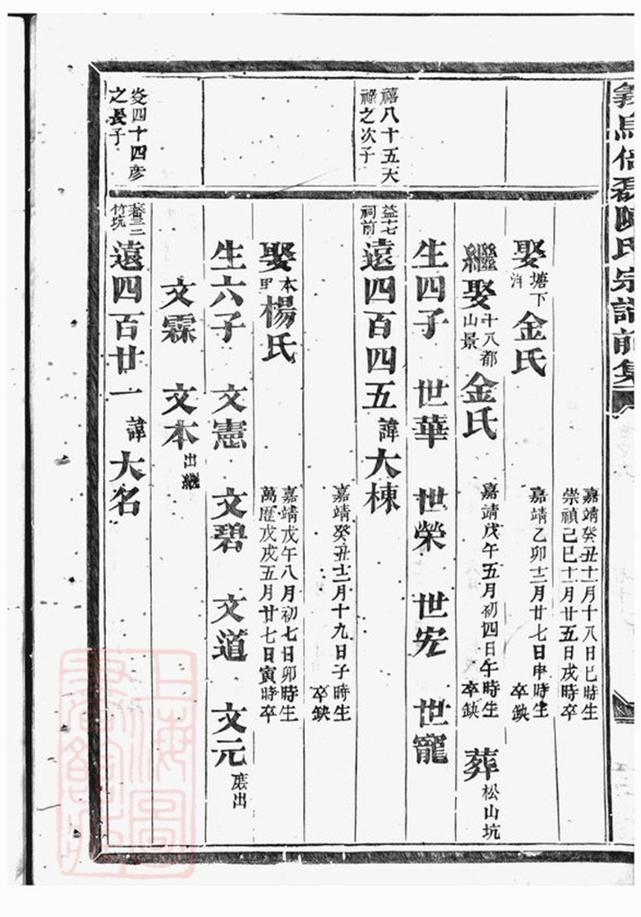 義烏倍磊陳氏宗譜前集
嘉靖癸丑十一月十八日巳時生
崇禎己巳十一月廿五日戌時卒
娶塘下金氏
嘉靖乙卯十二月廿七日申時生
卒缺
繼娶廿八都山景金氏
嘉靖戊午五月初四日午時生
卒缺
葬松山坑
生四子 世華 世榮 世宏 世寵
禧八十五大
祿之次子
益十七
祠前
遠四百四五 諱大棟
嘉靖癸丑十二月十九日子時生
卒缺
娶本里楊氏
嘉靖戊午八月初七日卯時生
萬歷戊戌五月廿七日寅時卒
生六子 文憲 文碧 文道 文元庶出
文霖 文本出繼
炎四十四彥
之長子
竹坑
遠四百廿一 諱大名
上海圖書館藏